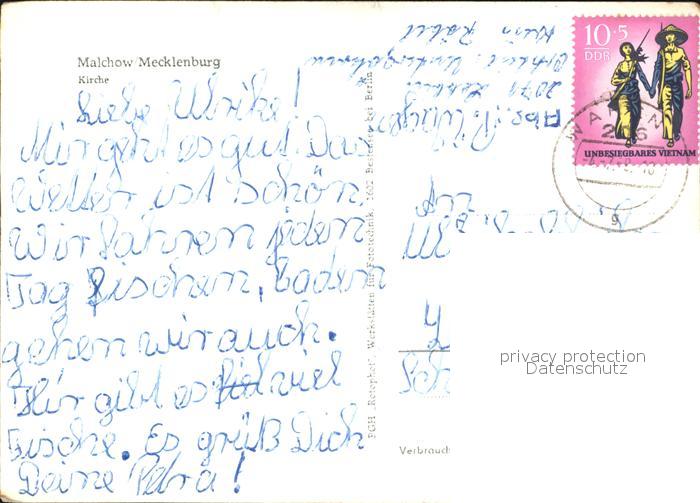 Malchow/Mecklenburg
Kirche
Liebe Ulrike!
Mir geht es gut. Das
Wetter ist schön.
Wir fahren jeden
Tag fischen, baden
gehen wir auch.
Hir gibt es viel
Fische. Es grüßt Dich
Deine Petra!
PGH „Rotophot“, Werkstätten für Fototechnik, 1602 Bestensee bei Berlin
Abs.: P.
Klein Röbel
10+5
DDR
UNBESIEGBARES VIETNAM
WAREN
g
An
Verbrauch
privacy protection
Datenschutz